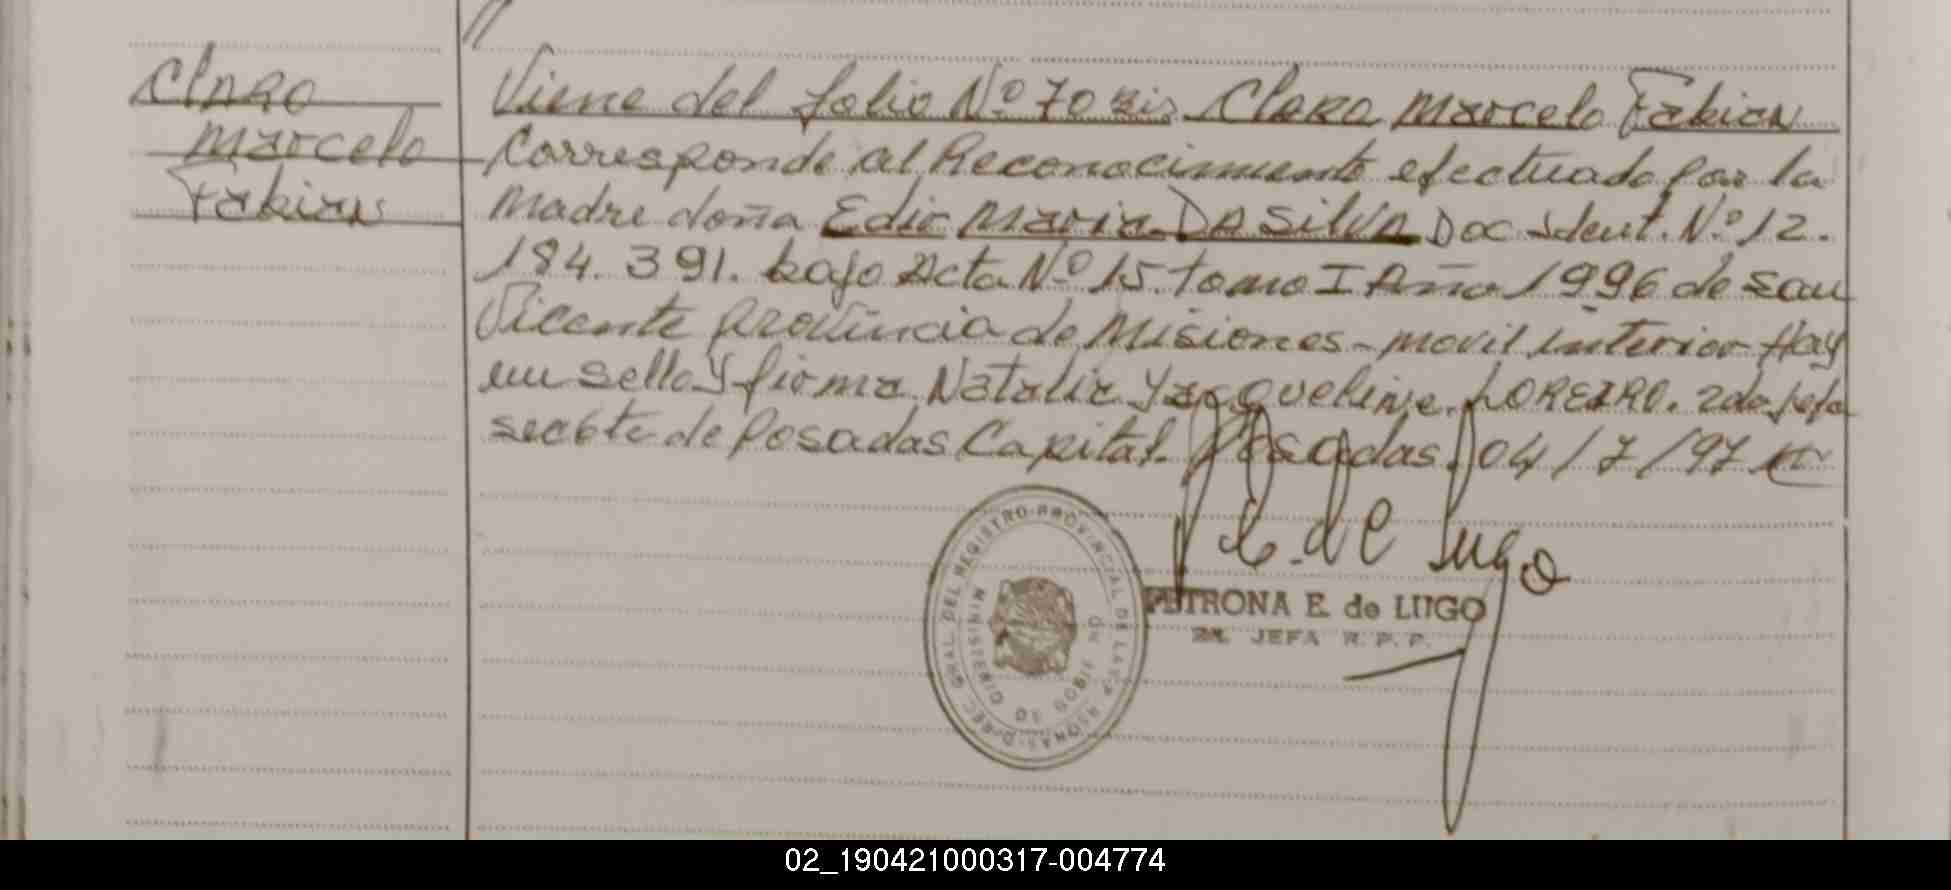 Claro
Marcelo
Fabian
Viene del folio Nº 70 Bis Claro Marcelo Fabian
Corresponde al Reconocimiento efectuado por la
Madre doña Edic Maria DA SILVA Doc Ident. Nº 12.
184.391. bajo Acta Nº 15. tomo I Año 1996 de San
Vicente Provincia de Misiones - movil interior Hay
un sello y firma Natalia Yacqueline LOREIRO. 2da Jefa
sec 6te de Posadas Capital. Posadas, 04/7/97
E. de Lugo
PETRONA E. de LUGO
2a. JEFA R. P. P.
GRAL DEL REGISTRO PROVINCIAL DE LAS P RSONAS
MINISTERIO DE GOBIERNO
02_190421000317-004774